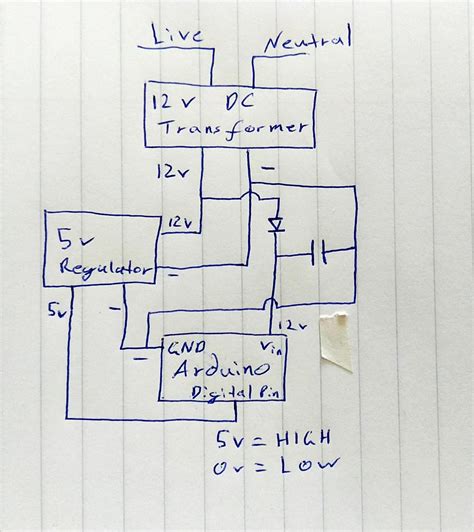 Live
Neutral
12v DC
Transformer
12v
−
12v
5v
Regulator
−
5v
−
12v
GND
Vin
−
Arduino
Digital Pin
5v = HIGH
0v = Low